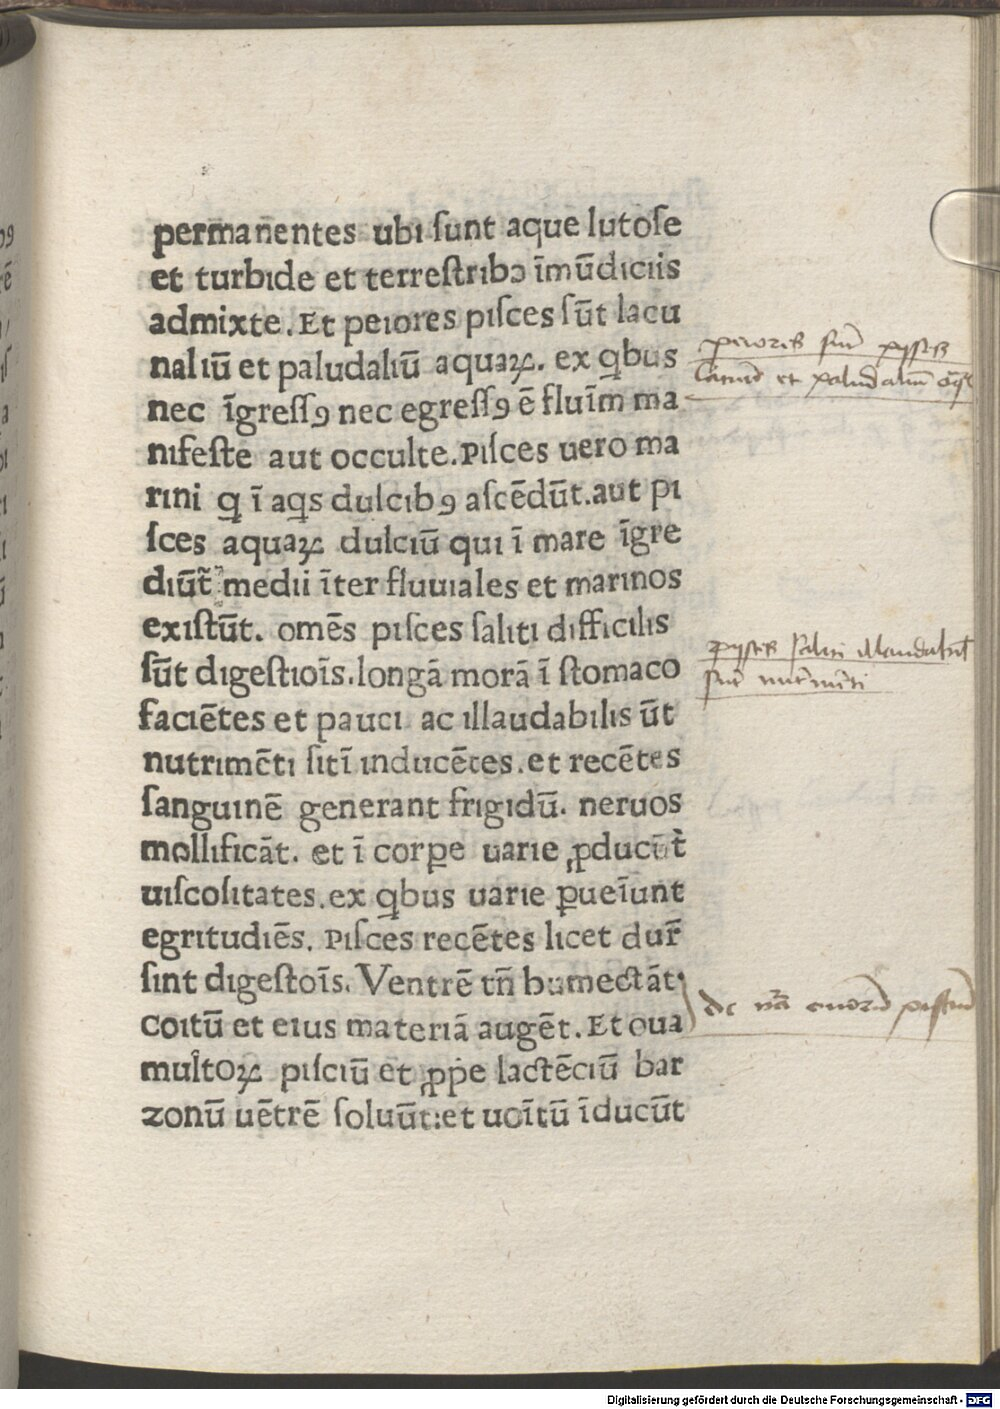 permanentes ubi sunt aque lutose
et turbide et terrestribꝰ īmūdiciis
admixte. Et peiores pisces sūt lacu
naliū et paludaliū aquaꝝ. ex qbus
nec īgressꝰ nec egressꝰ ē fluīm ma
nifeste aut occulte. Pisces uero ma
rini q ī aqs dulcibꝰ ascēdūt. aut pi
sces aquaꝝ dulciū qui ī mare īgre
diūt̄ medii īter fluuiales et marinos
existūt. omēs pisces saliti difficilis
sūt digestioīs. longā morā ī stomaco
faciētes et pauci ac illaudabilis ūt
nutrimēti sitī inducētes. et recētes
sanguinē generant frigidū. neruos
mollificāt. et ī corꝑe uarie ꝓducūt
uiscositates. ex qbus uarie ꝑueīunt
egritudiēs. Pisces recētes licet dur̄
sint digestoīs. Ventrē tn̄ humectāt
coitū et eius materiā augēt. Et oua
multoꝝ pisciū et ꝓpe lactēciū bar
zonū uētrē soluūt: et uoītū īducūt
peiores sunt pysces
et paludaliū
pysces saliti illaudabiles
sunt nutrimēti
de
Digitalisierung gefördert durch die Deutsche Forschungsgemeinschaft - DFG